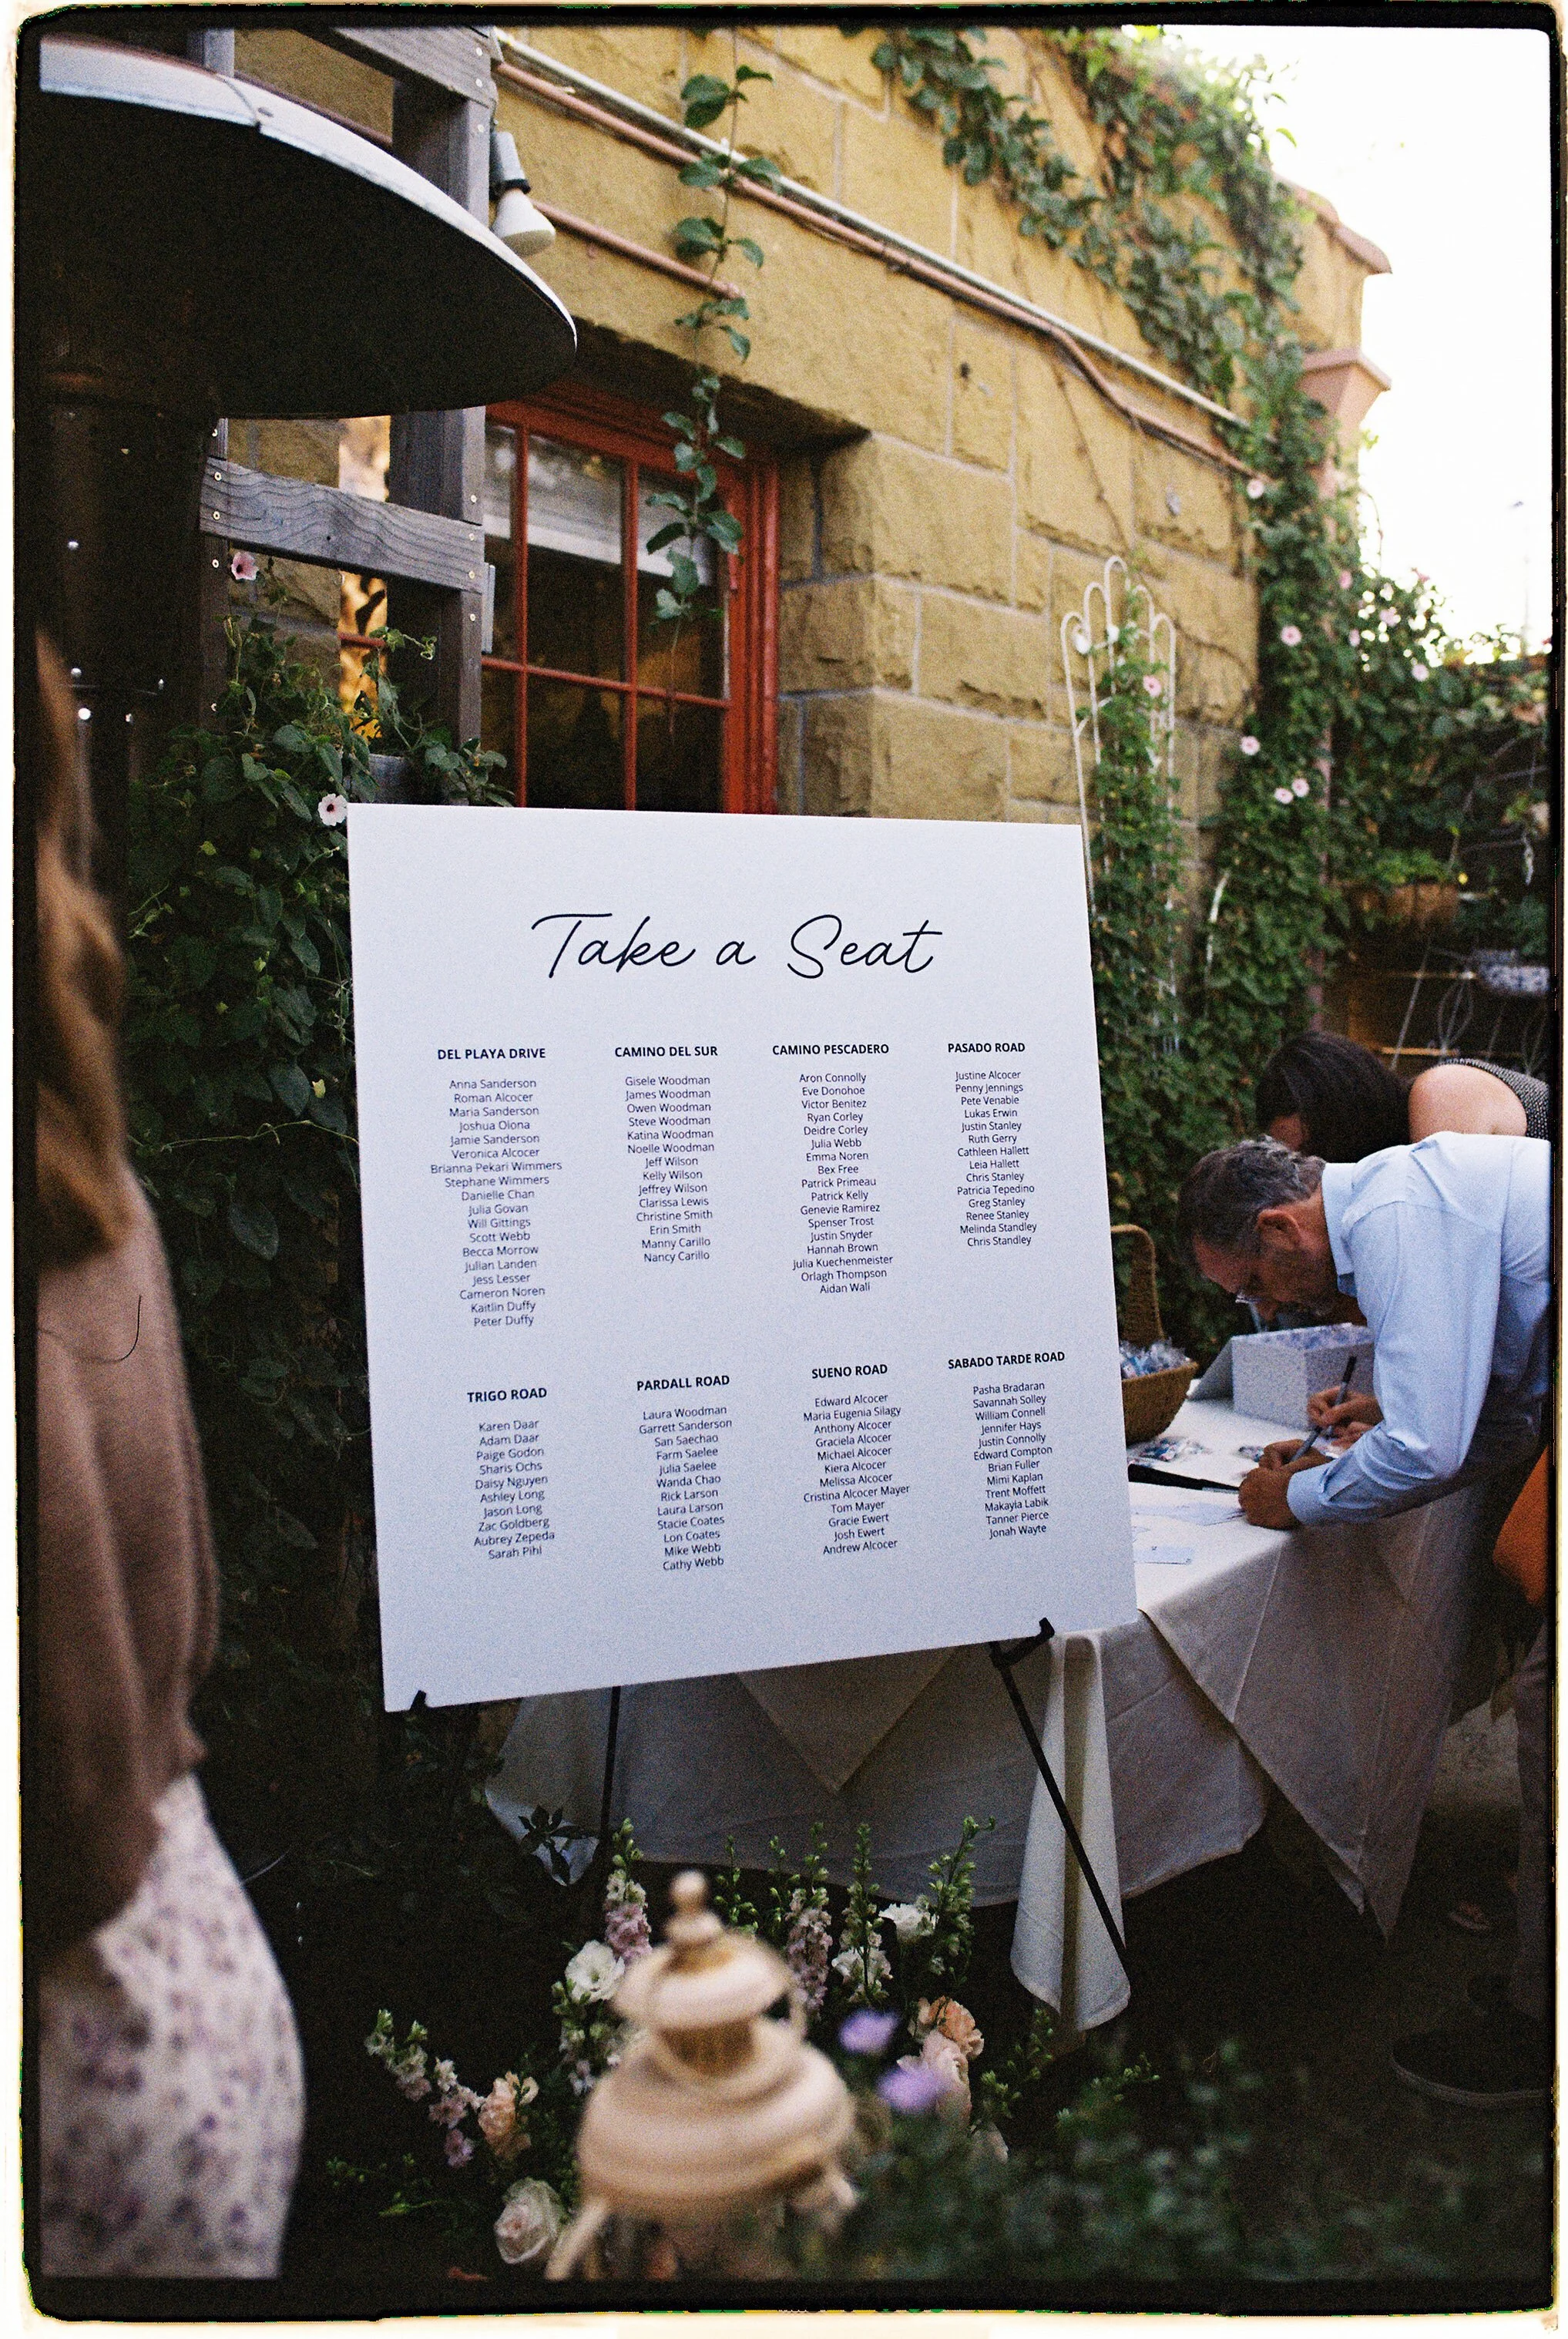 Take a Seat
DEL PLAYA DRIVE
Anna Sanderson
Roman Alcocer
Maria Sanderson
Joshua Olona
Jamie Sanderson
Veronica Alcocer
Brianna Pekari Wimmers
Stephane Wimmers
Danielle Chan
Julia Govan
Will Gittings
Scott Webb
Becca Morrow
Julian Landen
Jess Lesser
Cameron Noren
Kaitlin Duffy
Peter Duffy
CAMINO DEL SUR
Gisele Woodman
James Woodman
Owen Woodman
Steve Woodman
Katina Woodman
Noelle Woodman
Jeff Wilson
Kelly Wilson
Jeffrey Wilson
Clarissa Lewis
Christine Smith
Erin Smith
Manny Carillo
Nancy Carillo
CAMINO PESCADERO
Aron Connolly
Eve Donohoe
Victor Benitez
Ryan Corley
Deidre Corley
Julia Webb
Emma Noren
Bex Free
Patrick Primeau
Patrick Kelly
Genevie Ramirez
Spenser Trost
Justin Snyder
Hannah Brown
Julia Kuechenmeister
Orlagh Thompson
Aidan Wall
PASADO ROAD
Justine Alcocer
Penny Jennings
Pete Venable
Lukas Erwin
Justin Stanley
Ruth Gerry
Cathleen Hallett
Leia Hallett
Chris Stanley
Patricia Tepedino
Greg Stanley
Renee Stanley
Melinda Standley
Chris Standley
TRIGO ROAD
Karen Daar
Adam Daar
Paige Godon
Sharis Ochs
Daisy Nguyen
Ashley Long
Jason Long
Zac Goldberg
Aubrey Zepeda
Sarah Pihl
PARDALL ROAD
Laura Woodman
Garrett Sanderson
San Saechao
Farm Saelee
Julia Saelee
Wanda Chao
Rick Larson
Laura Larson
Stacie Coates
Lon Coates
Mike Webb
Cathy Webb
SUENO ROAD
Edward Alcocer
Maria Eugenia Silagy
Anthony Alcocer
Graciela Alcocer
Michael Alcocer
Kiera Alcocer
Melissa Alcocer
Cristina Alcocer Mayer
Tom Mayer
Gracie Ewert
Josh Ewert
Andrew Alcocer
SABADO TARDE ROAD
Pasha Bradaran
Savannah Solley
William Connell
Jennifer Hays
Justin Connolly
Edward Compton
Brian Fuller
Mimi Kaplan
Trent Moffett
Makayla Labik
Tanner Pierce
Jonah Wayte